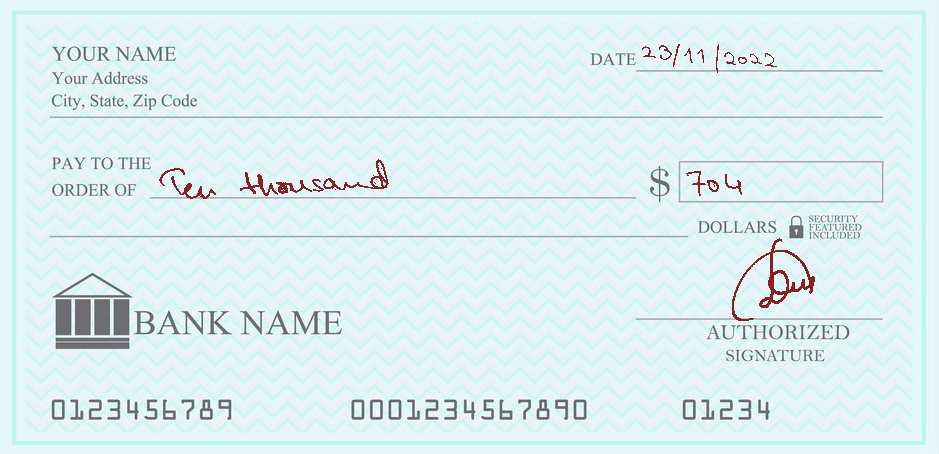 YOUR NAME
DATE 23/11/2022
Your Address
City, State, Zip Code
PAY TO THE
ORDER OF Ten thousand $ 704
DOLLARS SECURITY
FEATURED
INCLUDED
BANK NAME
AUTHORIZED
SIGNATURE
0123456789 0001234567890 01234